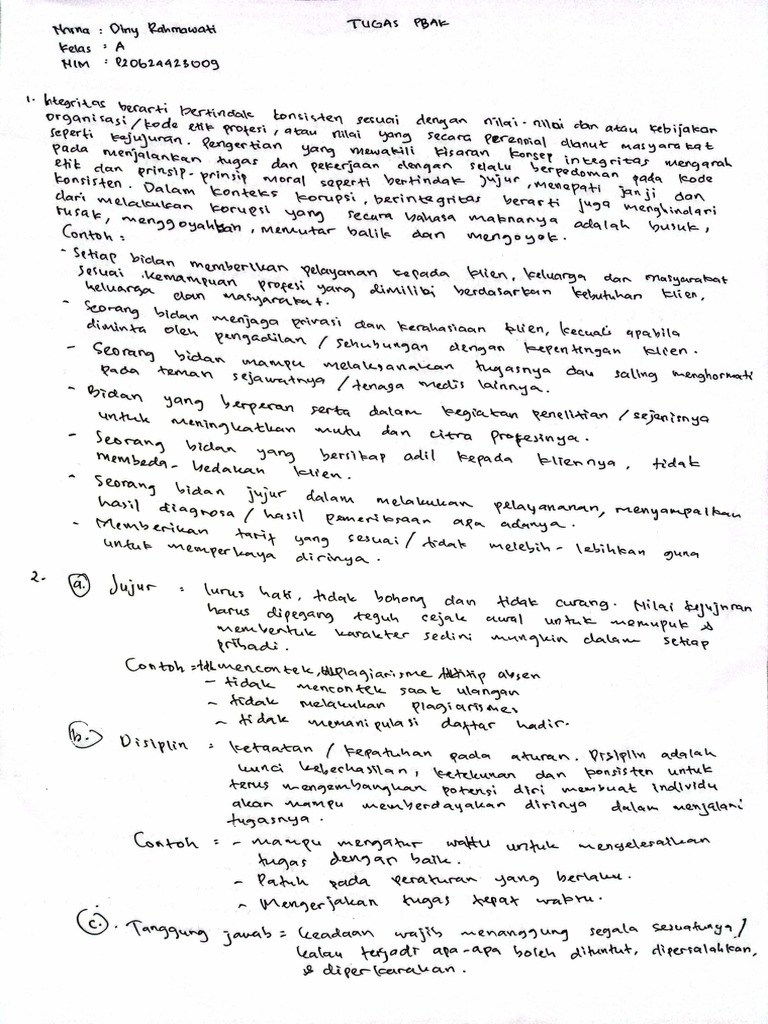 TUGAS PBAK
Nama : Olny Rahmawati
Kelas : A
NIM : P20624423009
1. Integritas berarti bertindak konsisten sesuai dengan nilai-nilai dan atau kebijakan
organisasi / kode etik profesi, atau nilai yang secara perennial dianut masyarakat
seperti kejujuran. Pengertian yang mewakili kisaran konsep integritas mengarah
pada menjalankan tugas dan pekerjaan dengan selalu berpedoman pada kode
etik dan prinsip-prinsip moral seperti bertindak jujur, menepati janji dan
konsisten. Dalam konteks korupsi, berintegritas berarti juga menghindari
dari melakukan korupsi yang secara bahasa maknanya adalah busuk,
rusak, menggoyahkan, memutar balik dan mengoyok.
Contoh :
- Setiap bidan memberikan pelayanan kepada klien, keluarga dan masyarakat
sesuai kemampuan profesi yang dimiliki berdasarkan kebutuhan klien,
keluarga dan masyarakat.
- Seorang bidan menjaga privasi dan kerahasiaan klien, kecuali apabila
diminta oleh pengadilan / sehubungan dengan kepentingan klien.
- Seorang bidan mampu melaksanakan tugasnya dan saling menghormati
pada teman sejawatnya / tenaga medis lainnya.
- Bidan yang berperan serta dalam kegiatan penelitian / sejenisnya
untuk meningkatkan mutu dan citra profesinya.
- Seorang bidan yang bersikap adil kepada kliennya, tidak
membeda-bedakan klien.
- Seorang bidan jujur dalam melakukan pelayananan, menyampaikan
hasil diagnosa / hasil pemeriksaan apa adanya.
- Memberikan tarif yang sesuai / tidak melebih-lebihkan guna
untuk memperkaya dirinya.
2. a. Jujur : lurus hati, tidak bohong dan tidak curang. Nilai kejujuran
harus dipegang teguh cejak awal untuk memupuk &
membentuk karakter sedini mungkin dalam setiap
pribadi.
Contoh = mencontek, plagiarisme titip absen
- tidak mencontek saat ulangan
- tidak melakukan plagiarismes
- tidak memanipulasi daftar hadir.
b. Disiplin : ketaatan / kepatuhan pada aturan. Disiplin adalah
kunci keberhasilan, ketekunan dan konsisten untuk
terus mengembangkan potensi diri membuat individu
akan mampu memberdayakan dirinya dalam menjalani
tugasnya.
Contoh : - mampu mengatur waktu untuk menyeleraikan
tugas dengan baik.
- Patuh pada peraturan yang berlaku.
- Mengerjakan tugas tepat waktu.
c. Tanggung jawab = keadaan wajib menanggung segala sesuatunya /
kalau terjadi apa-apa boleh dituntut, dipersalahkan,
& diperkarakan.